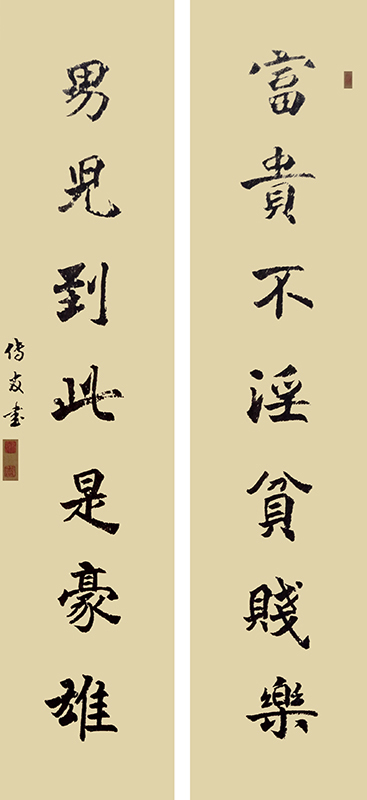 富貴不淫貧賤樂
男児到此是豪雄
傳友書